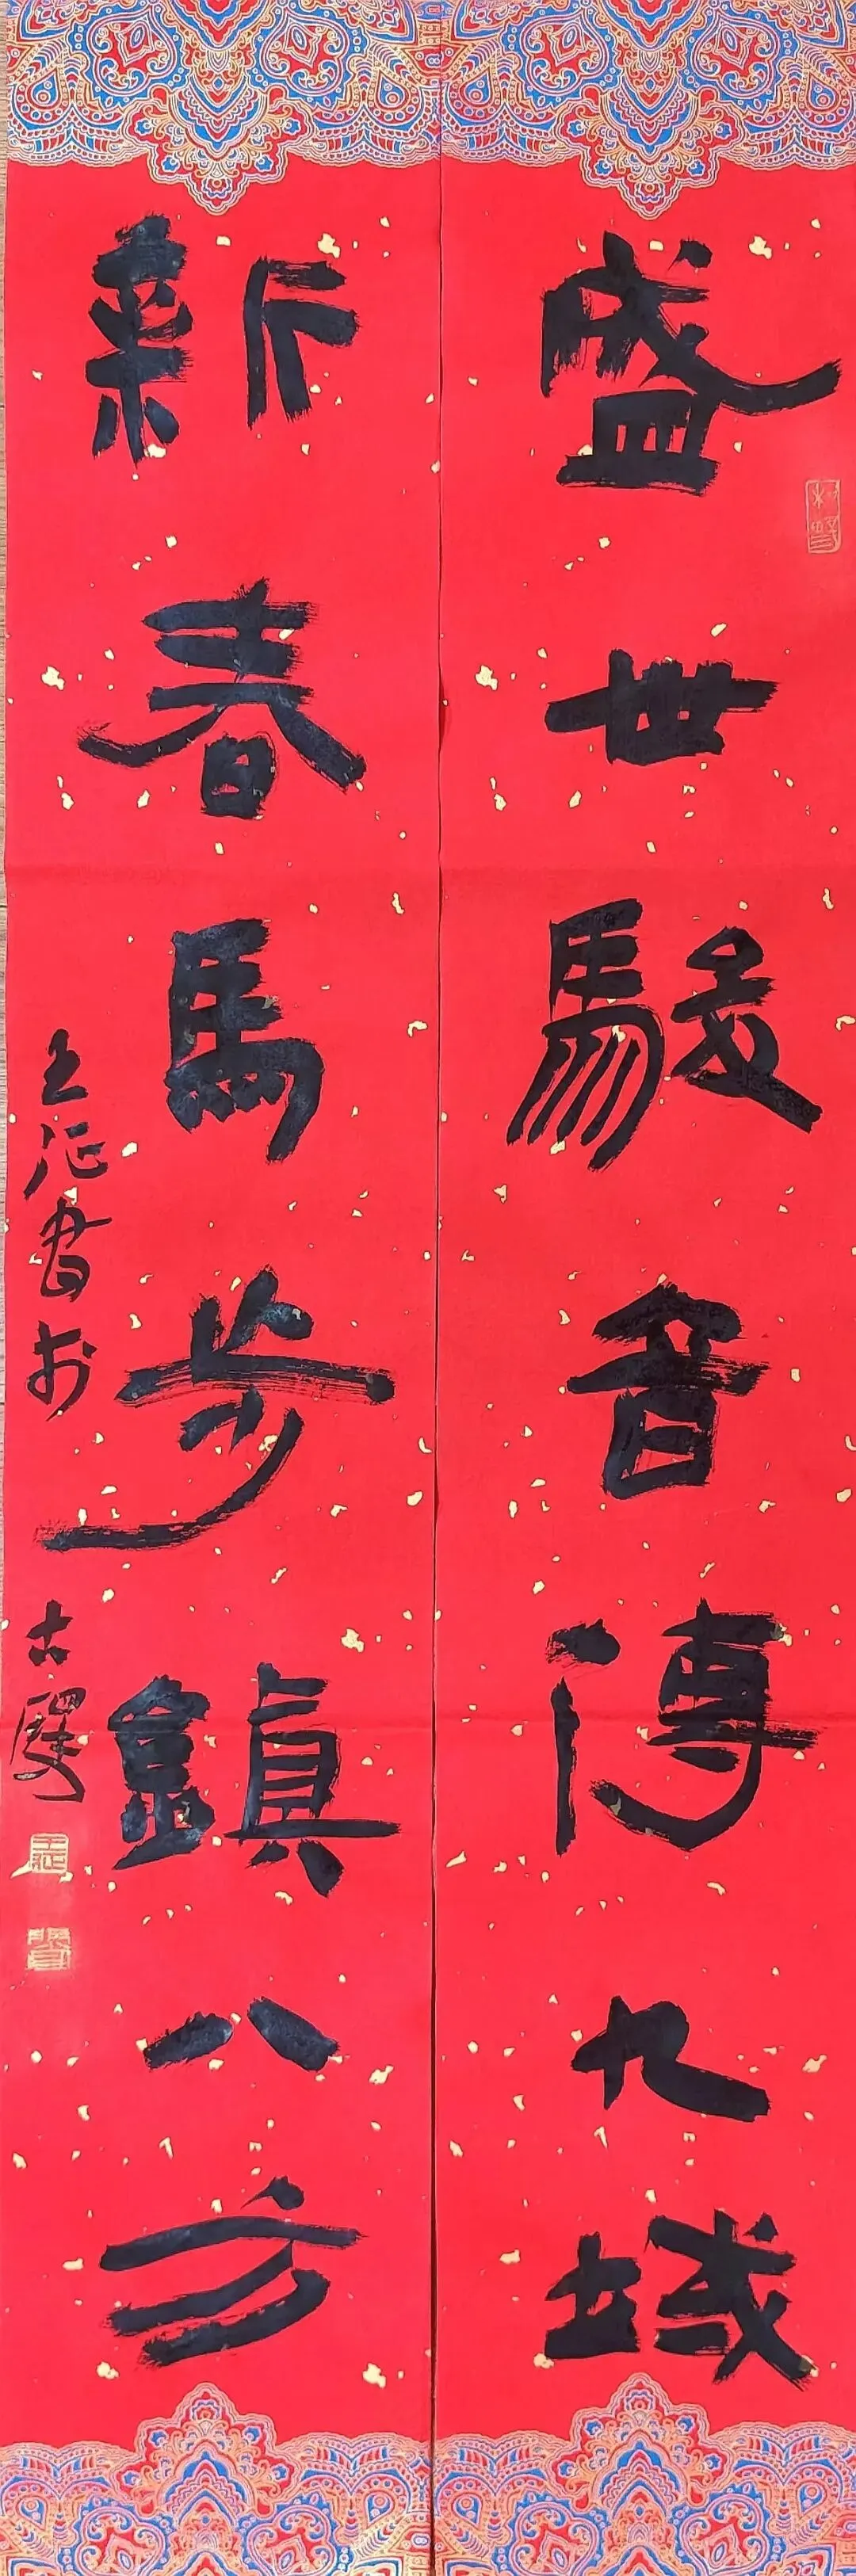 盛世駿音傳九域
新春馬步鎮八方
王征書於古歷